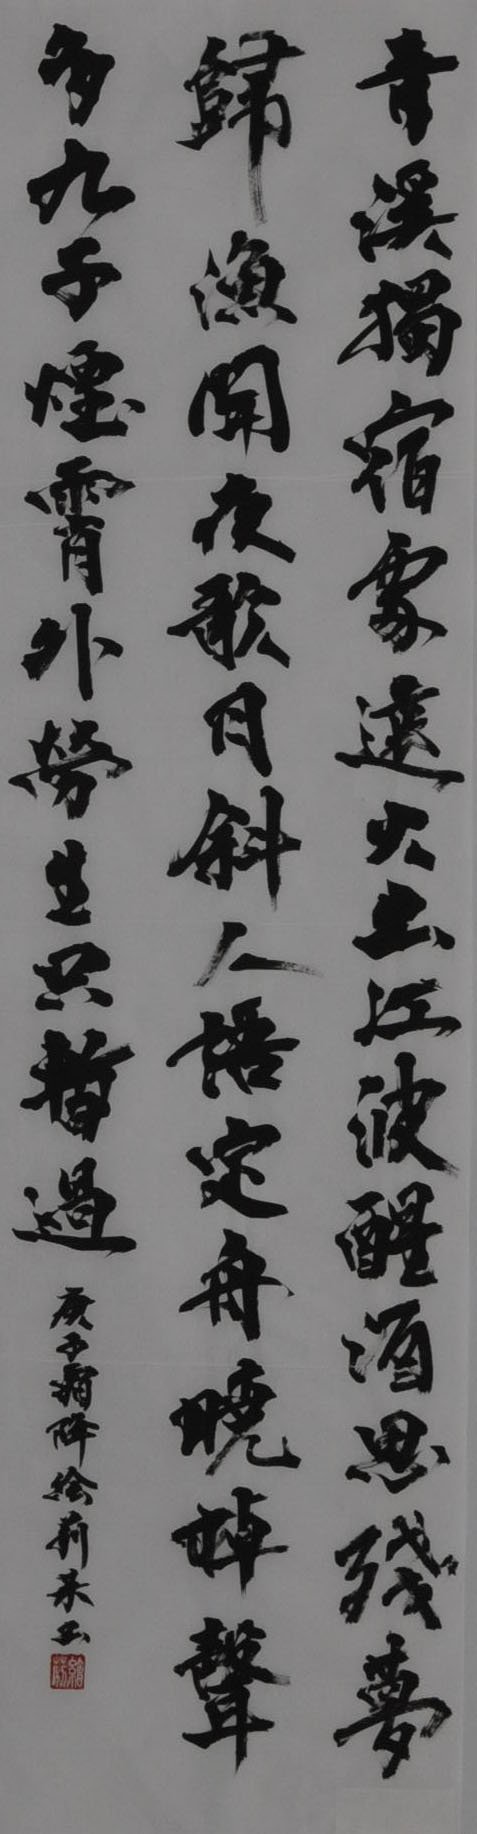 青溪獨宿處遠火出江波醒酒思殘夢
歸漁聞夜歌月斜人語定舟曉棹聲
多九子煙霄外勞生只暫過
庚子霜降繪荊未書